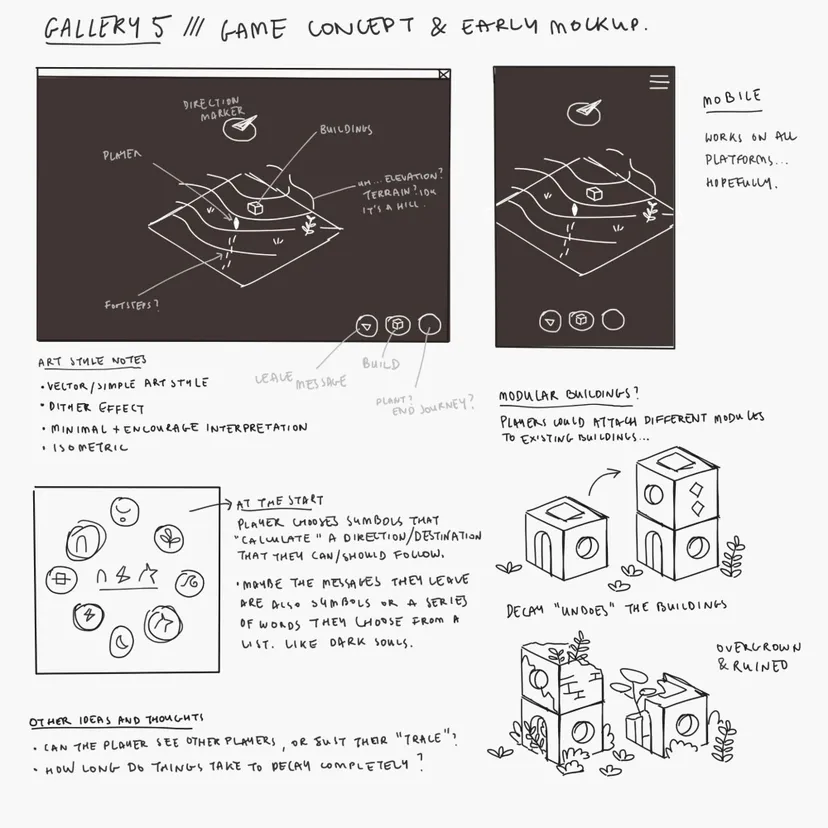 GALLERY 5 /// GAME CONCEPT & EARLY MOCKUP.
DIRECTION
MARKER
BUILDINGS
PLAYER
UM... ELEVATION?
TERRAIN? IDK
IT'S A HILL.
FOOTSTEPS?
LEAVE
MESSAGE
BUILD
PLANT?
END JOURNEY?
MOBILE
WORKS ON ALL
PLATFORMS...
HOPEFULLY.
ART STYLE NOTES
• VECTOR/SIMPLE ART STYLE
• DITHER EFFECT
• MINIMAL + ENCOURAGE INTERPRETATION
• ISOMETRIC
MODULAR BUILDINGS?
PLAYERS COULD ATTACH DIFFERENT MODULES
TO EXISTING BUILDINGS...
AT THE START
PLAYER CHOOSES SYMBOLS THAT
"CALCULATE" A DIRECTION/DESTINATION
THAT THEY CAN/SHOULD FOLLOW.
• MAYBE THE MESSAGES THEY LEAVE
ARE ALSO SYMBOLS OR A SERIES
OF WORDS THEY CHOOSE FROM A
LIST. LIKE DARK SOULS.
DECAY "UNDOES" THE BUILDINGS
OVERGROWN
& RUINED
OTHER IDEAS AND THOUGHTS
• CAN THE PLAYER SEE OTHER PLAYERS, OR JUST THEIR "TRACE"?
• HOW LONG DO THINGS TAKE TO DECAY COMPLETELY?